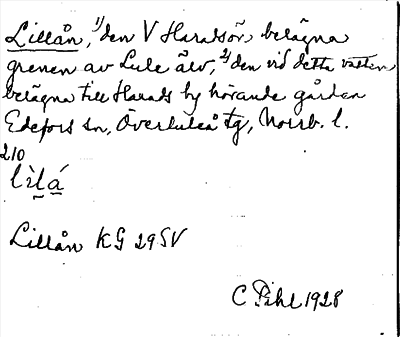 Lillån, 1) den V Haradsön belägna
grenen av Lule älv, 2) den vid detta vatten
belägna till Harads by hörande gården
Edefors sn, Överluleå tg, Norrb. l.
210
lìlá
Lillån KG 29 SV
C Pihl 1928